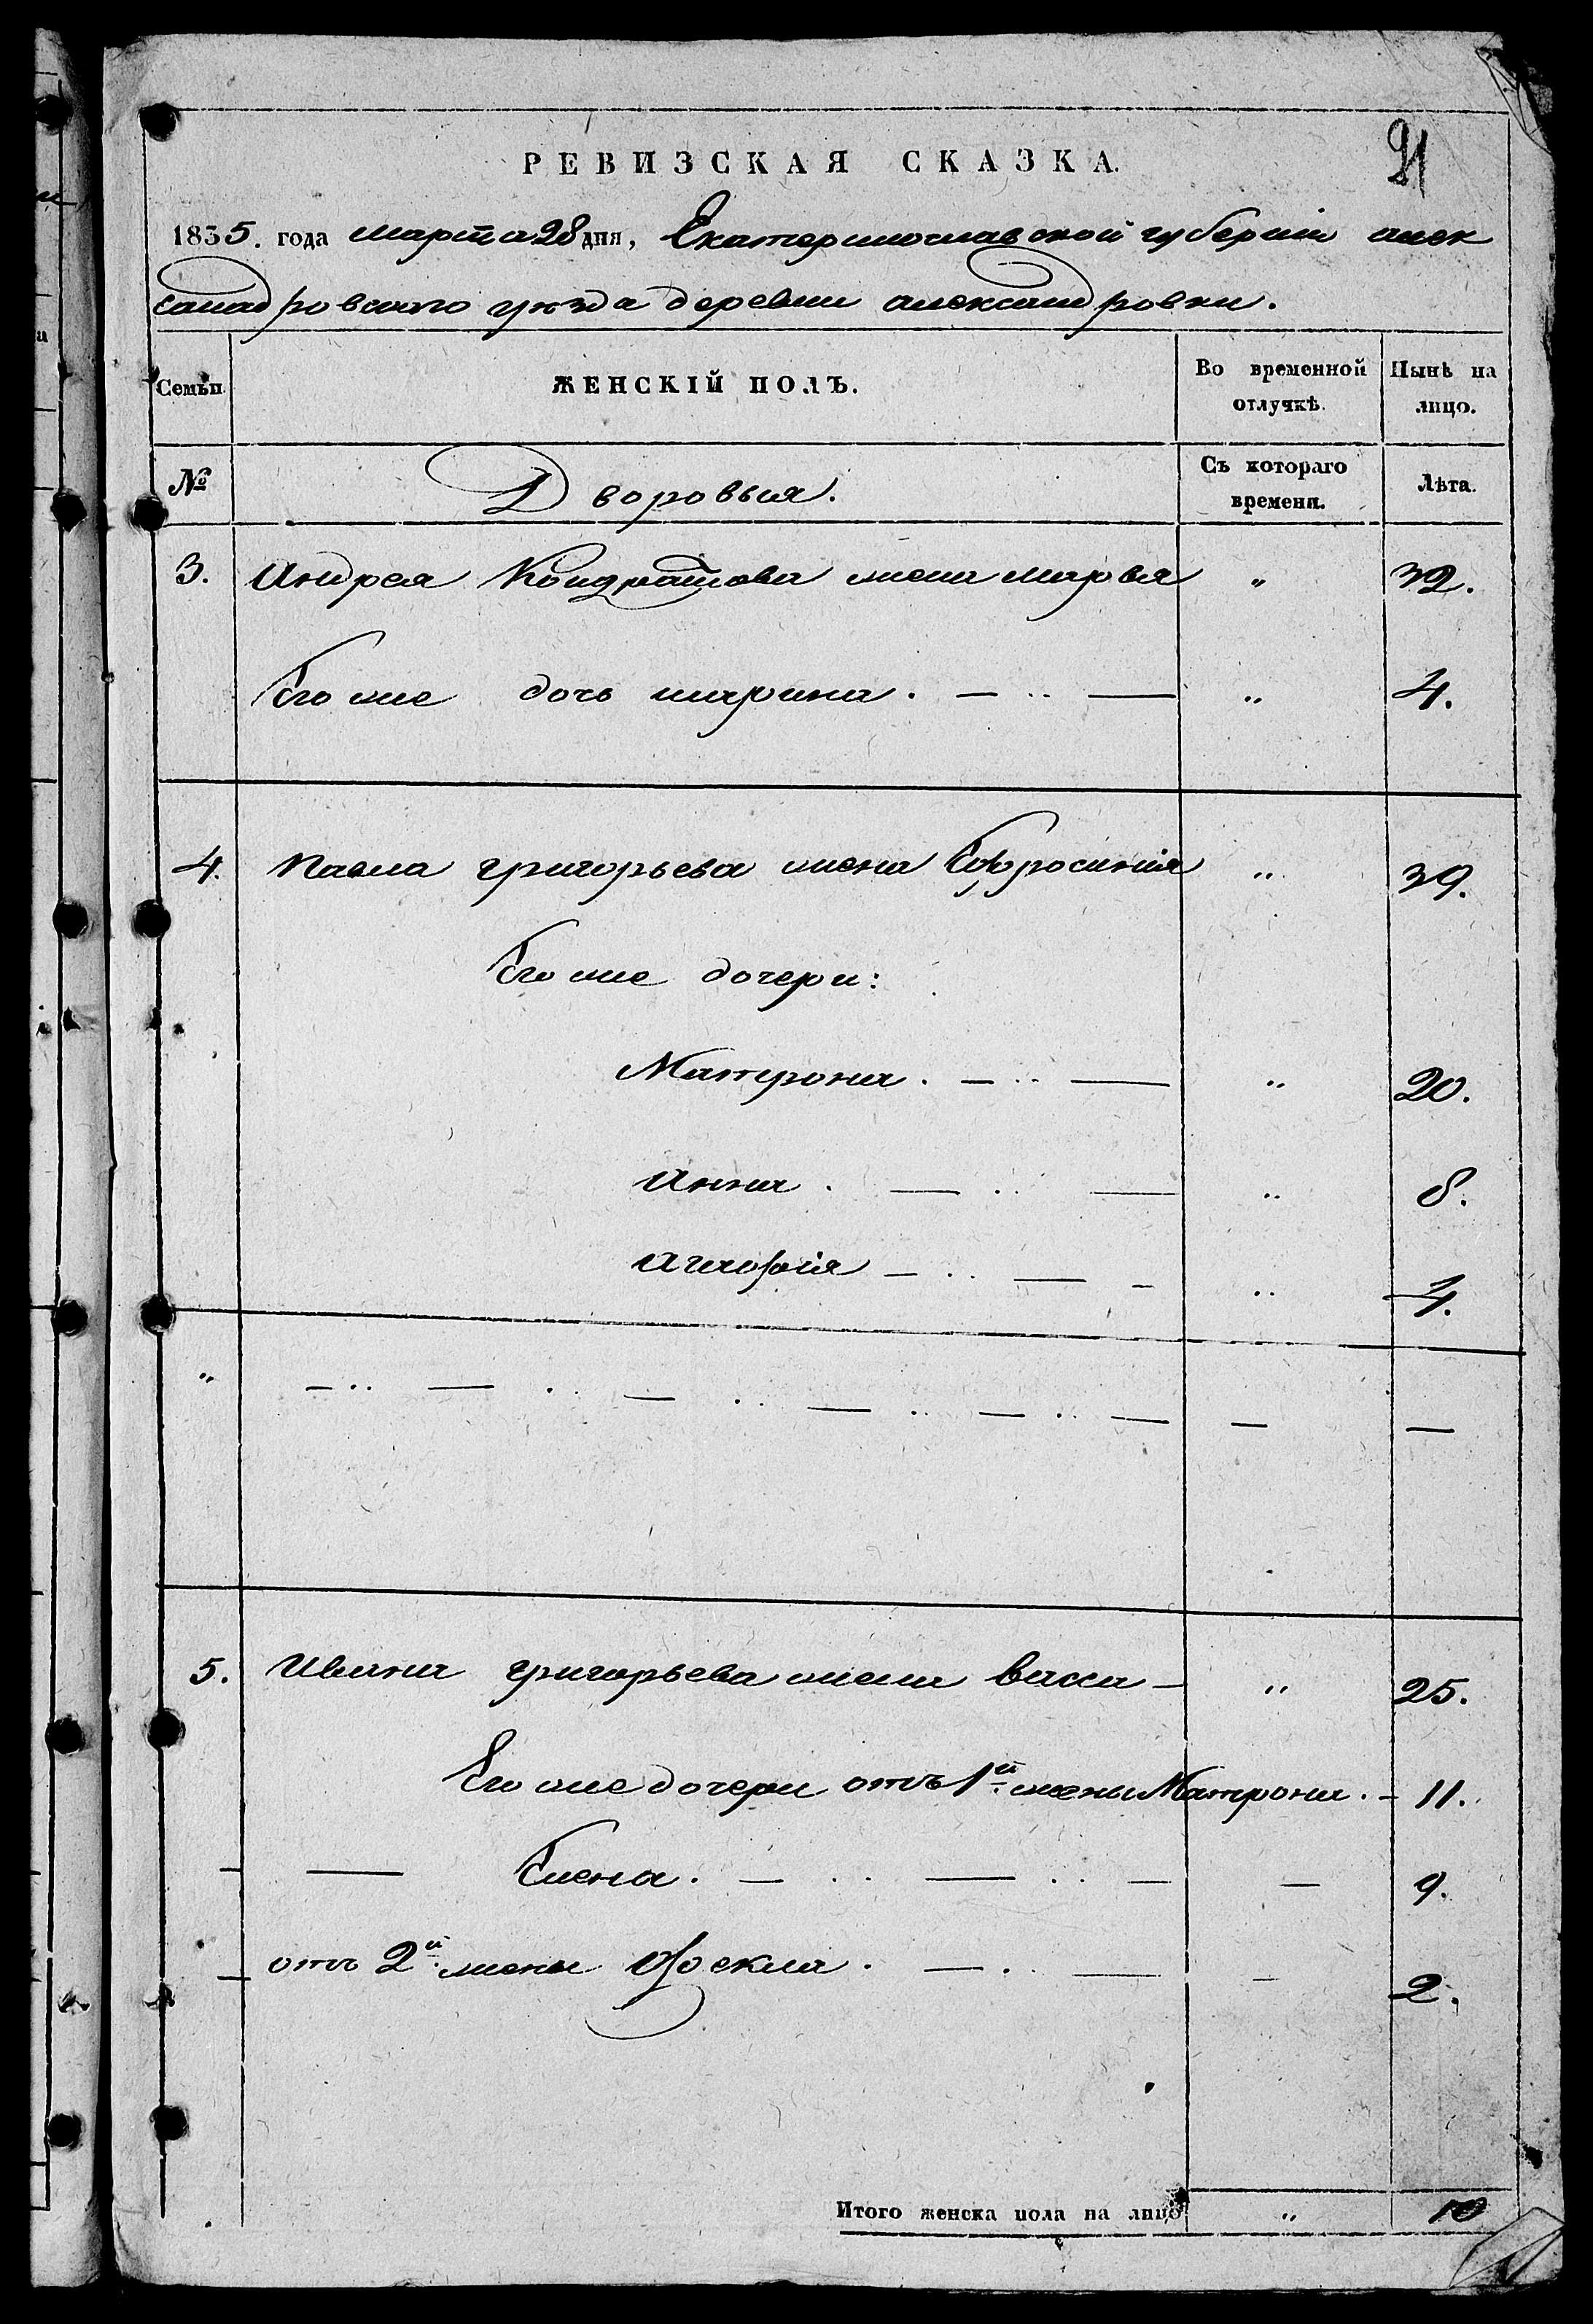 РЕВИЗСКАЯ СКАЗКА.
21
1835. года марта 28 дня, Екатеринославской губерніи алек
сандровского уѣзда деревни александровки.
Семьи. ЖЕНСКІЙ ПОЛЪ. Во временной отлучкѣ. Нынѣ на лицо.
№ Дворовыя. Съ котораго времени. Лѣта.
3. Андрея Кондратова жена марья " 32.
Его же дочь марина. — " — " 4.
4. Павла григорьева жена Ефросинія " 39.
Его же дочери:
Матрона. — " — " 20.
Анна. — " — " 8.
Агафія — " — - " 4.
" — " — " — " — " — " — — —
5. Ивана григорьева жена васса — " 25.
Его же дочери отъ 1й жены Матрона. - 11.
— — Елена. — " — " — — 9.
— отъ 2й жены Фекла. — " — — 2.
Итого женска пола на лицо " 10